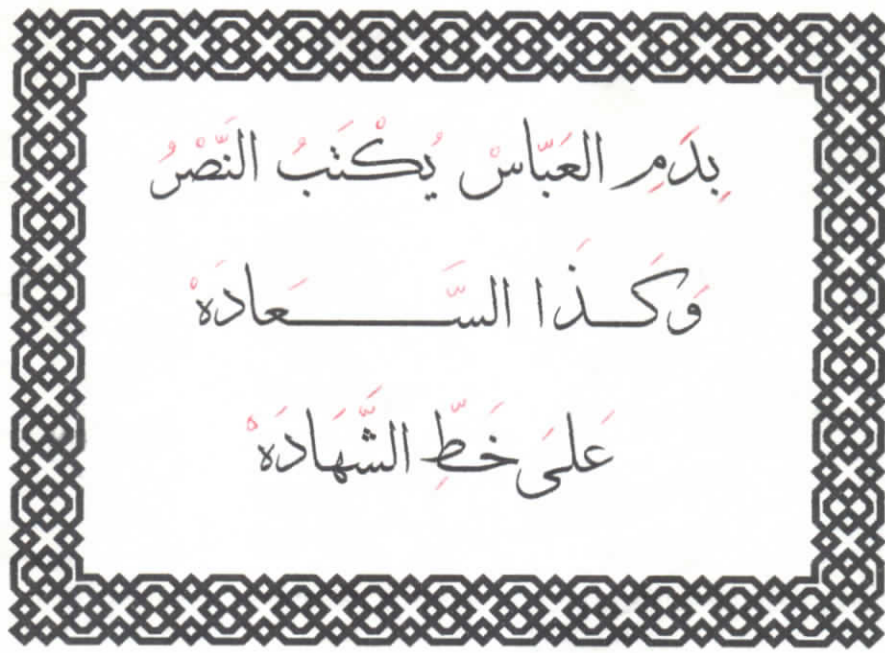 بِدَمِ العَبّاسْ يُكْتَبُ النَّصْرُ
وَكَذَا السَّعادَهْ
عَلىَ خَطِّ الشَّهَادَهْ